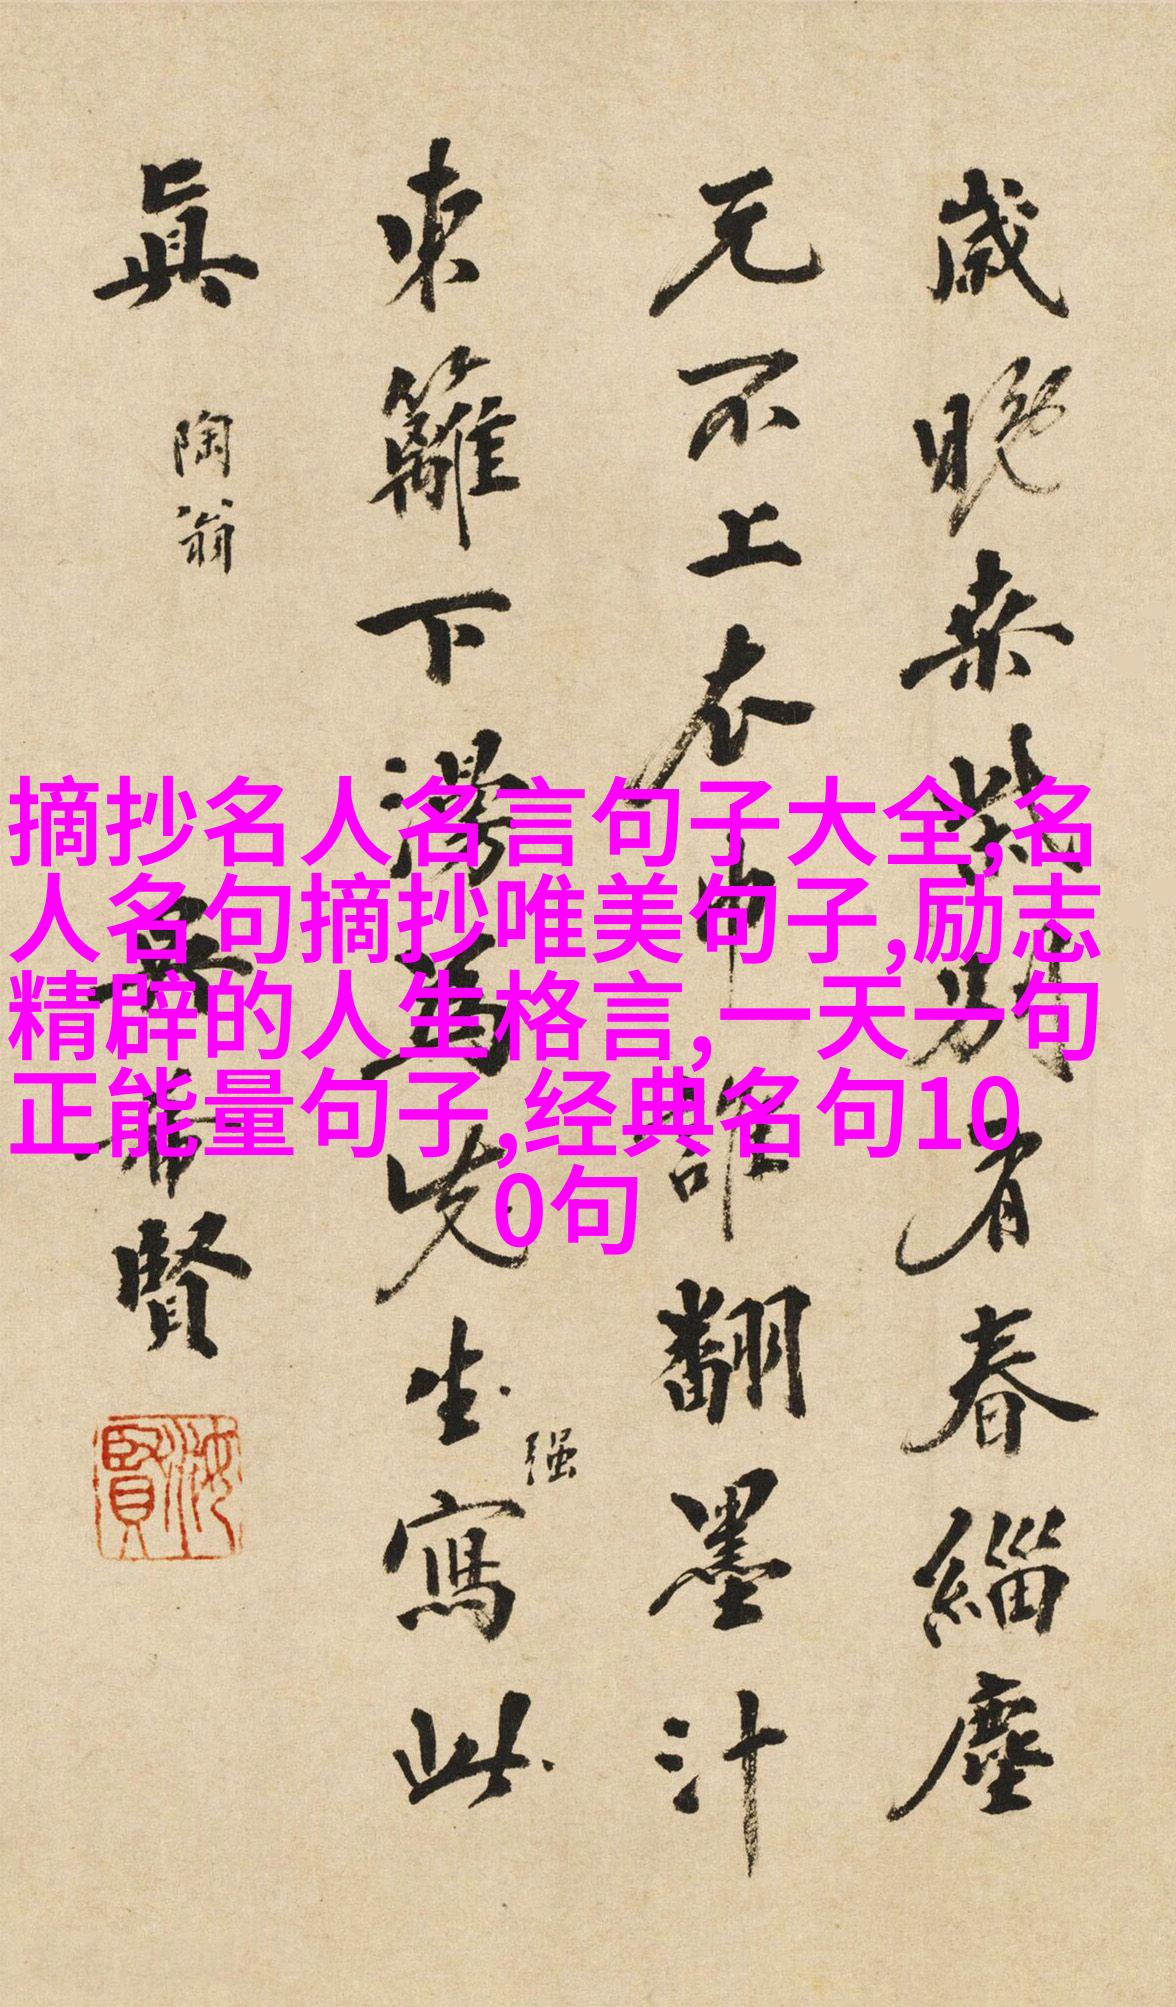 摘抄名人名言句子大全,名
人名句摘抄唯美句子,励志
精辟的人生格言,一天一句
正能量句子,经典名句10
0句
歲晚別有春緇塵
元不上衣巾誰翻墨汁
東籬下漫爲先生寫此
强
真 陶翁 吳希賢
汝賢